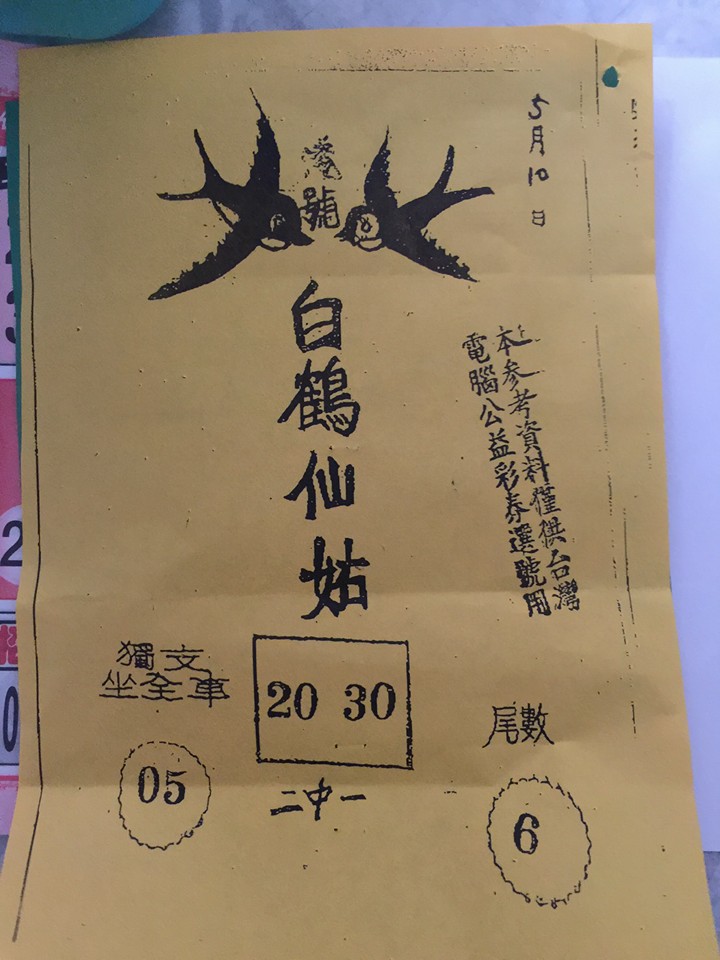 5月10日
號
白鶴仙姑
本參考資料僅供台灣
電腦公益彩券選號用
獨支
坐全車
05
20 30
二中一
尾數
6
2
0